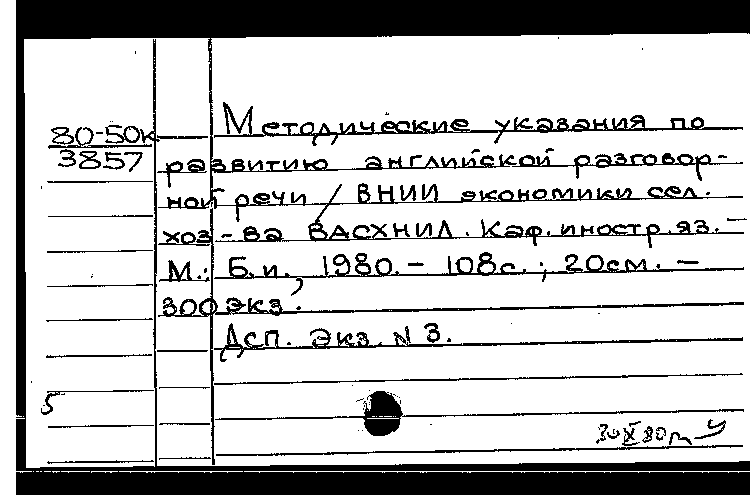 80-50к
3857
Методические указания по
развитию английской разговор-
ной речи / ВНИИ экономики сел.
хоз-ва ВАСХНИЛ. Каф. иностр. яз. –
М.: Б.и., 1980. – 108с.; 20см. –
300 экз.
Дсп. Экз. N 3.
5